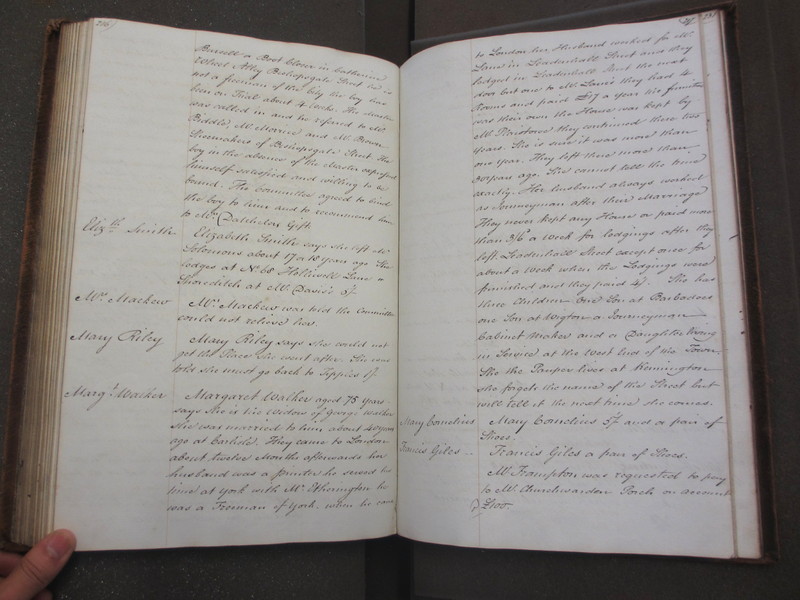 230
Burnell a Boot Closer in Catherine
Wheel Alley Bishopsgate Street he is
not a freeman of the City the boy has
been on Trial about 4 weeks. The Master
was called in and he refered to Mr.
Biddle, Mr. Morris and Mr. Brown
Shoemakers of Bishopsgate Street. The
boy in the absence of the Master expressed
himself satisfied and willing to be
bound. The Committee agreed to bind
the boy to him and to recommend him
to Mrs. Datchelors Gift.
Elizth. Smith
Elizabeth Smith says she left Mr.
Solomons about 17 or 18 years ago She
lodges at No. 68 Holliwell Lane
Shoreditch at Mr. Davis's
Mrs. Mackew
Mrs. Mackew was told the Committee
could not relieve her.
Mary Riley
Mary Riley says she could not
get the Place she went after. She was
told she must go back to Tipples
Margt. Walker
Margaret Walker aged 75 years
says she is the widow of George Walker
She was married to him about 40 years
ago at Carlisle. They came to London
about twelve Months afterwards her
husband was a printer he served his
time at York with Mr. Etherington he
was a Freeman of York, when he came
231
to London her Husband worked for Mr.
Lane in Leadenhall Street and they
lodged in Leadenhall Street the next
door but one to Mr. Lane's they had 4
Rooms and paid £17 a Year the furniture
was their own the House was kept by
Mr. Plaistowe they continued there two
Years. She is sure it was more than
one year. They left there more than
years ago. She cannot tell the time
exactly. Her husband always worked
as Journeyman after their Marriage
They never kept any House or paid more
than 3/6 a Week for lodgings after they
left Leadenhall Street except once for
about a Week when the Lodgings were
furnished and they paid 4/. She has
three Children One Son at Barbadoes
one Son at Wigton a Journeyman
Cabinet Maker and a Daughter living
in Service at the West End of the Town.
She the Pauper lives at Kennington
she forgets the name of the Street but
will tell it the next time she comes.
Mary Cornelius
Mary Cornelius 5/ and a pair of
Shoes.
Francis Giles
Francis Giles a pair of Shoes.
Mr. Frampton was requested to pay
to Mr. Churchwarden Porch on account
£100.